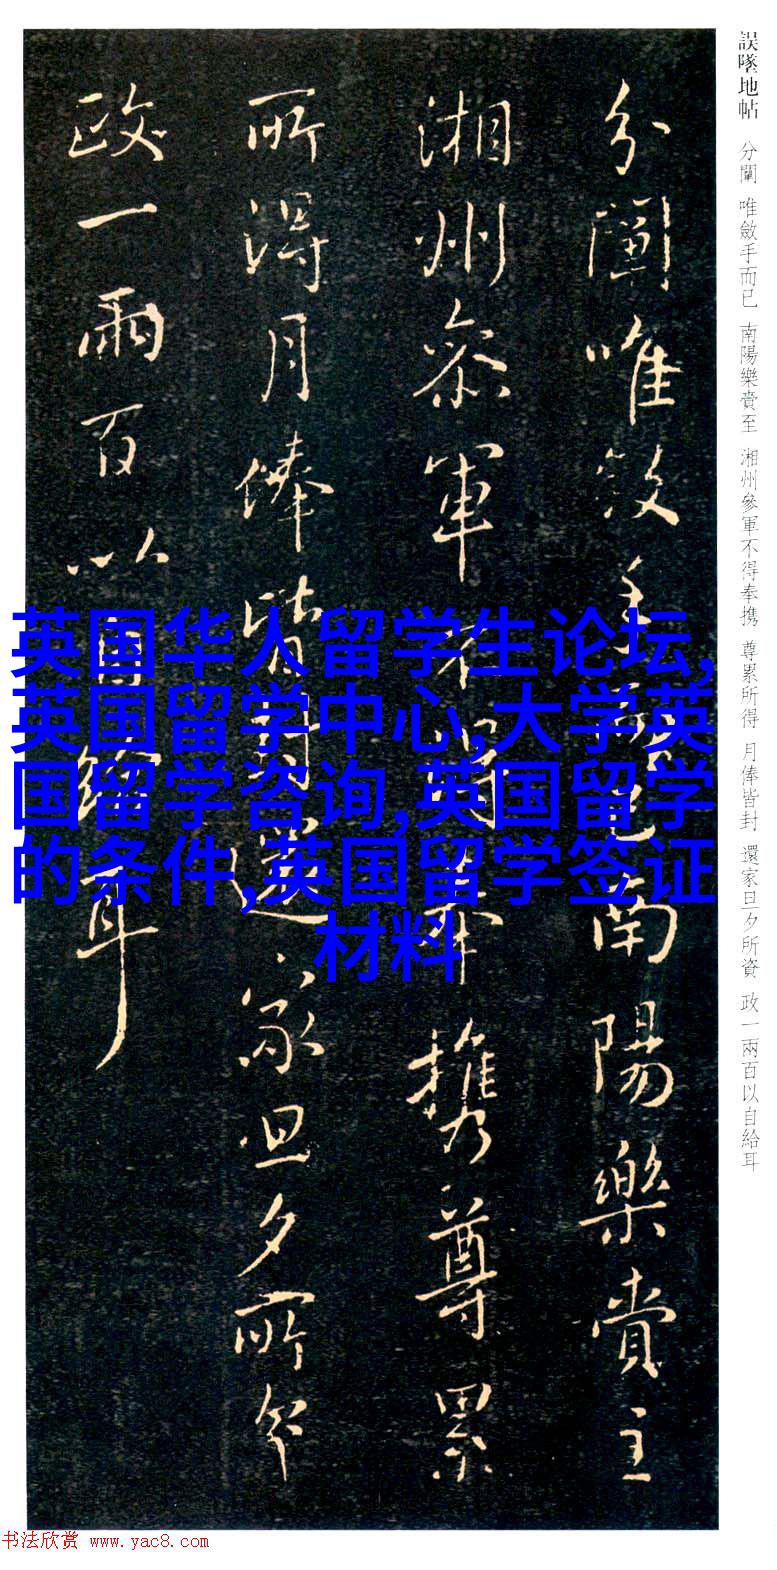 誤墜地帖 分闡 唯斂手而已 南陽樂賁至 湘州參軍不得奉携 尊累所得 月俸皆封 還家旦夕所資 政一兩百以自給耳
分闡唯斂手而已南陽樂賁至
湘州參軍不得奉携尊累
所得月俸皆封還家旦夕所資
政一兩百以自給耳
英国华人留学生论坛,
英国留学中心,大学英
国留学咨询,英国留学
的条件,英国留学签证
材料
书法欣赏 www.yac8.com